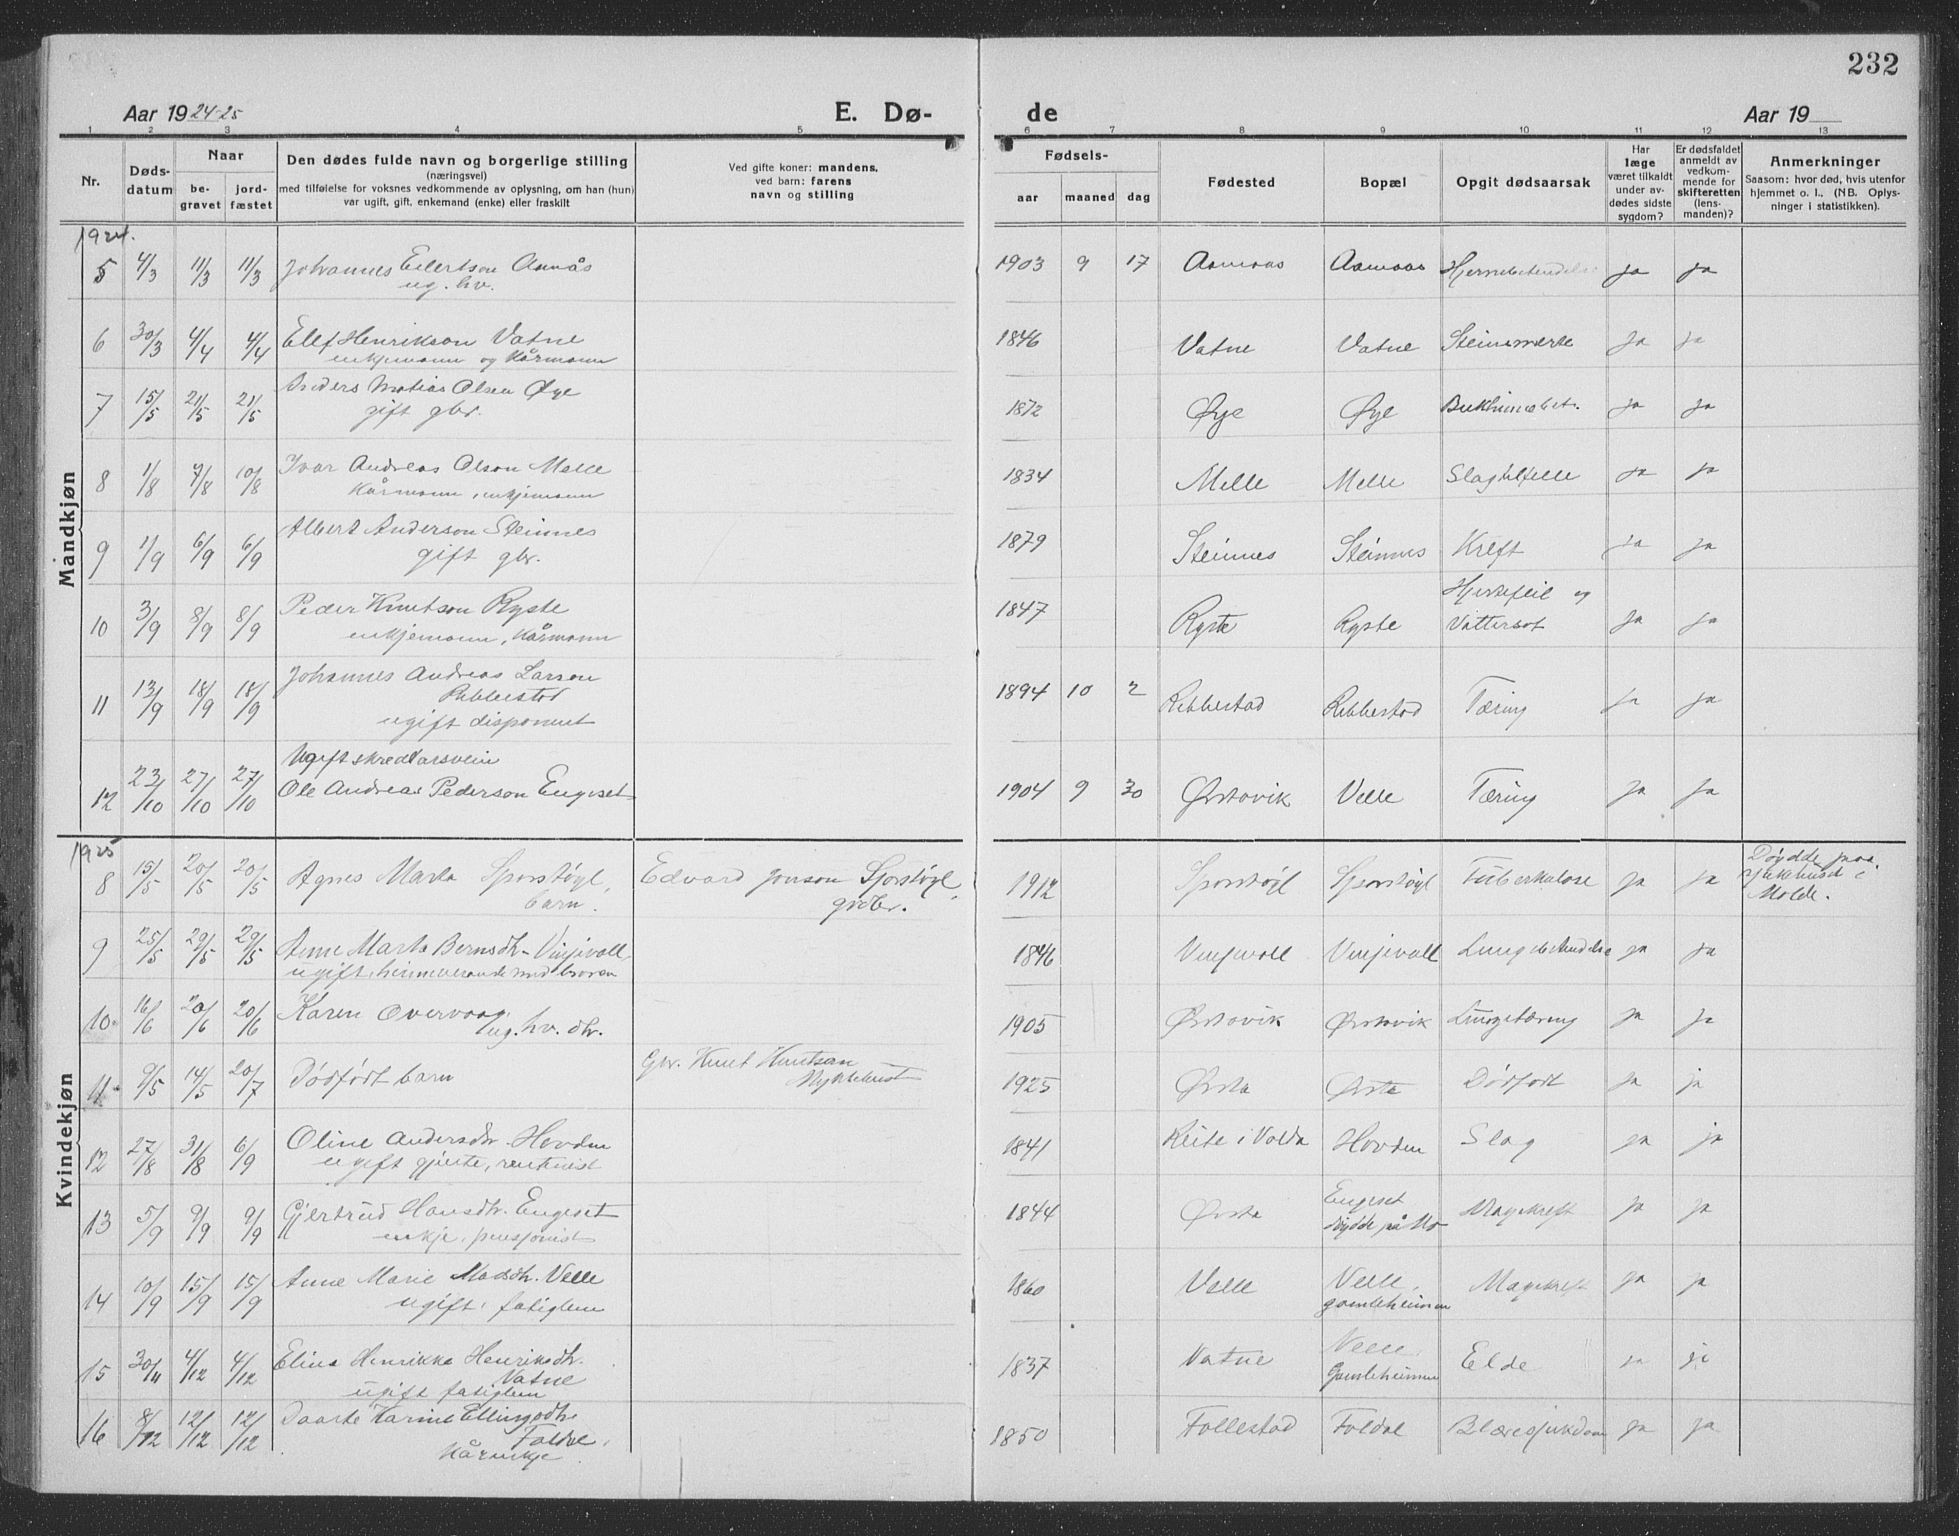 232
Aar 1924-25 E. Dø- de Aar 19
1 2 3 4 5 6 7 8 9 10 11 12 13
Nr. Døds-datum Naar be-gravet jord-fæstet
Den dødes fulde navn og borgerlige stilling
(næringsvei)
med tilføielse for voksnes vedkommende av oplysning, om han (hun)
var ugift, gift, enkemand (enke) eller fraskilt
Ved gifte koner: mandens,
ved barn: farens
navn og stilling
Fødsels- aar maaned dag Fødested Bopæl Opgit dødsaarsak
Har læge været tilkaldt under av-dødes sidste sygdom?
Er dødsfaldet anmeldt av vedkom-mende for skifteretten (lens-manden)?
Anmerkninger
Saasom: hvor død, hvis utenfor hjemmet o. l.. (NB. Oplys-ninger i statistikken).
Mandkjøn
1924.
5 4/3 11/3 11/3 Johannes Eilertson Aamås 1903 9 17 Aamaas Aamaas Hjernebetendelse ja ja
ug. hv.
6 30/3 4/4 4/4 Elef Henrikson Vatne 1846 Vatne Vatne ja ja
enkjemann og Kårmann
7 15/5 21/5 21/5 Anders Matias Olsen Øye 1872 Øye Øye Bukhinnebet. ja ja
gift gbr.
8 1/8 7/8 10/8 Ivar Andreas Olson Melle 1834 Melle Melle Slagtilfelle ja ja
Kårmann, enkjemann
9 1/9 6/9 6/9 Albert Anderson Steinnes 1879 Steinnes Steinnes Kreft ja ja
gift gbr.
10 3/9 8/9 8/9 Peder Knutson Ryste 1847 Ryste Ryste Hjertefeil og
enkjemann, Kårmann Vattersot ja ja
11 13/9 18/9 18/9 Johannes Andreas Larson 1894 10 2 Ribbestad Ribbestad Tæring ja ja
Ribbestad
ugift disponent
Ugift skreddarsvein
12 23/10 27/10 27/10 Ole Andreas Pederson Engeset 1904 9 30 Ørstavik Velle Tæring ja ja
Kvindekjøn
1925
8 15/5 20/5 20/5 Agnes Marta Sporstøyl, Edvard Jonson Sporstøyl, 1912 Sporstøyl Sporstøyl Tuberkulose ja ja Døydde paa
barn. grdbr. sjukehuset i
Molde.
9 25/5 29/5 29/5 Anne Marta Bernsdtr. Vinjevoll 1846 Vinjevoll Vinjevoll Lungebetendelse ja ja
ugift, heimeverande med broren
10. 16/6 20/6 20/6 Karen Overvaag, 1905 Ørstavik Ørstavik Lungetæring ja ja
ug. hv. dtr.
11. 9/5 14/5 20/7 Dødfødt barn Gbr. Knut Knutson 1925 Ørsta Ørsta Dødfødt ja ja
Myklebust
12 27/8 31/8 6/9 Oline Andersdtr. Hovden 1841 Reite i Volda Hovden Slag ja ja
ugift gjente, rentenist
13 5/9 9/9 9/9 Gjertrud Hansdtr. Engeset 1844 Ørsta Engeset Magekreft ja ja
enkje, pensjonist døydde på Mo
14 10/9 15/9 15/9 Anne Marie Madsdtr. Velle 1860 Velle Velle, Magekreft ja ja
ugift, fatiglem gamleheimen
15 30/11 4/12 4/12 Elina Henrikka Henriksdtr. 1837 Vatne Velle Elde ja ja
Vatne Gamleheimen
ugift fatiglem
16 8/12 12/12 12/12 Daarte Karine Ellingsdtr. 1850 Follestad Foldal Blæresjukdom ja ja
Foldal,
Kårenkje